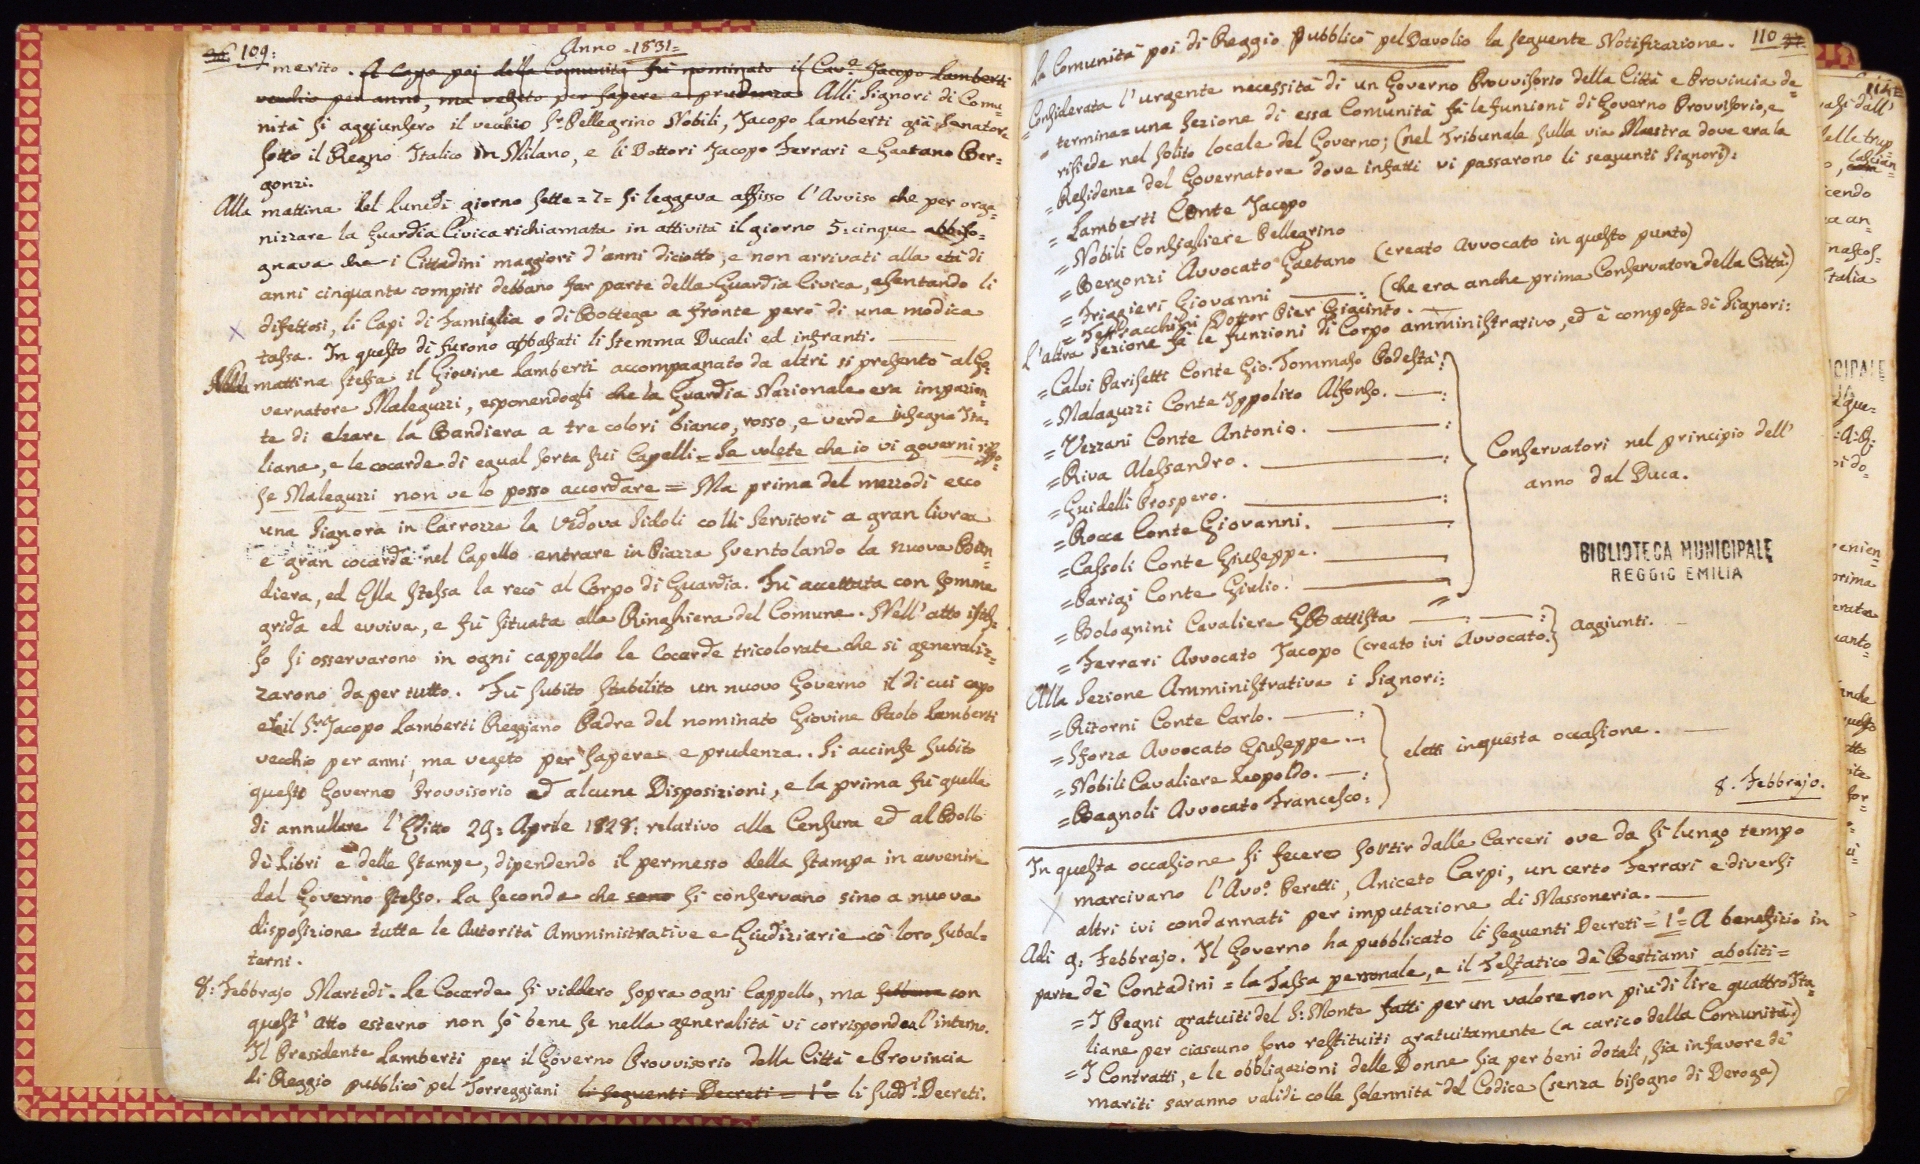 36. 109:
Anno =1831=
merito. A Capo poi della Comunità fù nominato il Cav.e Jacopo Lamberti
vecchio per anni, ma vegeto per sapere e prudenza. Alli Signori di Comu=
nità si aggiunsero il vecchio S.r Pellegrino Nobili, Jacopo Lamberti già Senatore
sotto il Regno Italico in Milano, e li Dottori Jacopo Ferrari e Gaetano Ber=
gonzi.
Alla mattina del Lunedì giorno sette =7= si leggeva affisso l'Avviso che per orga=
nizzare la Guardia Civica richiamata in attività il giorno 5: cinque abbiso=
gnava che i Cittadini maggiori d'anni diciotto, e non arrivati alla età di
anni cinquanta compiti debbano far parte della Guardia Civica, esentando li
difettosi, li Capi di Famiglia o di Bottega a fronte però di una modica
tassa. In questo dì furono abbassati li Stemma Ducali ed infranti.
mattina stessa il Giovine Lamberti accompagnato da altri si presentò al Go=
vernatore Maleguzzi, esponendogli che la Guardia Nazionale era impazien=
te di alzare la Bandiera a tre colori bianco, rosso, e verde insegna Ita=
liana, e le cocarde di egual sorta sui Capelli = Se volete che io vi governi rispo=
se Maleguzzi non ve lo posso accordare = Ma prima del mezzodì ecco
una Signora in Carrozza la Vedova Sidoli colli Servitori a gran livrea
e gran cocarda nel Capello entrare in Piazza sventolando la nuova Ban=
diera, ed Ella stessa la recò al Corpo di Guardia. Fù accettata con somme
grida ed evviva, e fù situata alla Ringhiera del Comune. Nell'atto istes=
so si osservarono in ogni cappello le Cocarde tricolorate che si generaliz=
zarono da per tutto. Fù subito stabilito un nuovo Governo il di cui capo
è il S.r Jacopo Lamberti Reggiano Padre del nominato Giovine Paolo Lamberti
vecchio per anni, ma vegeto per sapere e prudenza. Si accinse subito
questo Governo Provvisorio ad alcune Disposizioni, e la prima fù quella
di annullare l'Editto 29: Aprile 1828: relativo alla Censura ed al Bollo
dè Libri e delle Stampe, dipendendo il permesso della stampa in avvenire
dal Governo stesso. La seconda che sono si conservano sino a nuova
disposizione tutte le Autorità Amministrative e Giudiziarie cò loro subal=
terni.
8: Febbrajo Martedì. Le Cocarde si viddero sopra ogni Cappello, ma con
quest'atto esterno non sò bene se nella generalità vi corrisponda l'interno.
Il Presidente Lamberti per il Governo Provvisorio della Città e Provincia
di Reggio pubblicò pel Torreggiani li seguenti Decreti = 1° = li sudd.i Decreti.
110 37.
la Comunità poi di Reggio pubblicò pel Davolio la seguente Notificazione.
Considerata l'urgente necessità di un Governo Provvisorio della Città e Provincia de=
= termina = una Sezione di essa Comunità fà le funzioni di Governo Provvisorio, e
risiede nel solito locale del Governo; (nel Tribunale sulla via Maestra dove era la
= Residenza del Governatore dove infatti vi passarono li seguenti Signori):
= Lamberti Conte Jacopo
= Nobili Consigliere Pellegrino
= Bergonzi Avvocato Gaetano (creato Avvocato in questo punto)
= Friggieri Giovanni : (che era anche prima Conservatore della Città.)
= Terrachini Dottor Pier Giacinto.
L'altra Sezione fà le funzioni di Corpo amministrativo, ed è composta di Signori:
= Calvi Parisetti Conte Gio: Tommaso Podestà:
= Malaguzzi Conte Ippolito Alfonso. :
= Vezzani Conte Antonio. :
= Riva Alessandro. :
= Guidelli Prospero. :
= Rocca Conte Giovanni. :
= Cassoli Conte Giuseppe.
= Parigi Conte Giulio.
Conservatori nel principio dell'
anno dal Duca.
BIBLIOTECA MUNICIPALE
REGGIO EMILIA
= Bolognini Cavaliere GBattista :
= Ferrari Avvocato Jacopo (creato ivi Avvocato.) aggiunti.
Alla Sezione Amministrativa i Signori:
= Ritorni Conte Carlo. :
= Sforza Avvocato Giuseppe. :
= Nobili Cavaliere Leopoldo. :
= Bagnoli Avvocato Francesco:
eletti in questa occasione.
8. Febbrajo.
In questa occasione si fecero sortir dalle Carceri ove da sì lungo tempo
marcivano l'Avv.o Peretti, Aniceto Carpi, un certo Ferrari e diversi
altri ivi condannati per imputazione di Massoneria.
Adì 9: Febbrajo. Il Governo ha pubblicato li seguenti Decreti = 1° = A benefizio in
parte dè Contadini = la Tassa personale, e il Testatico dè Bestiami aboliti =
= I Pegni gratuiti del S: Monte fatti per un valore non più di lire quattro Ita=
liane per ciascuno sono restituiti gratuitamente (a carico della Comunità.)
= I Contratti, e le obbligazioni delle Donne sia per beni dotali, sia in favore dè
mariti saranno validi colle solennità del Codice (senza bisogno di Deroga)